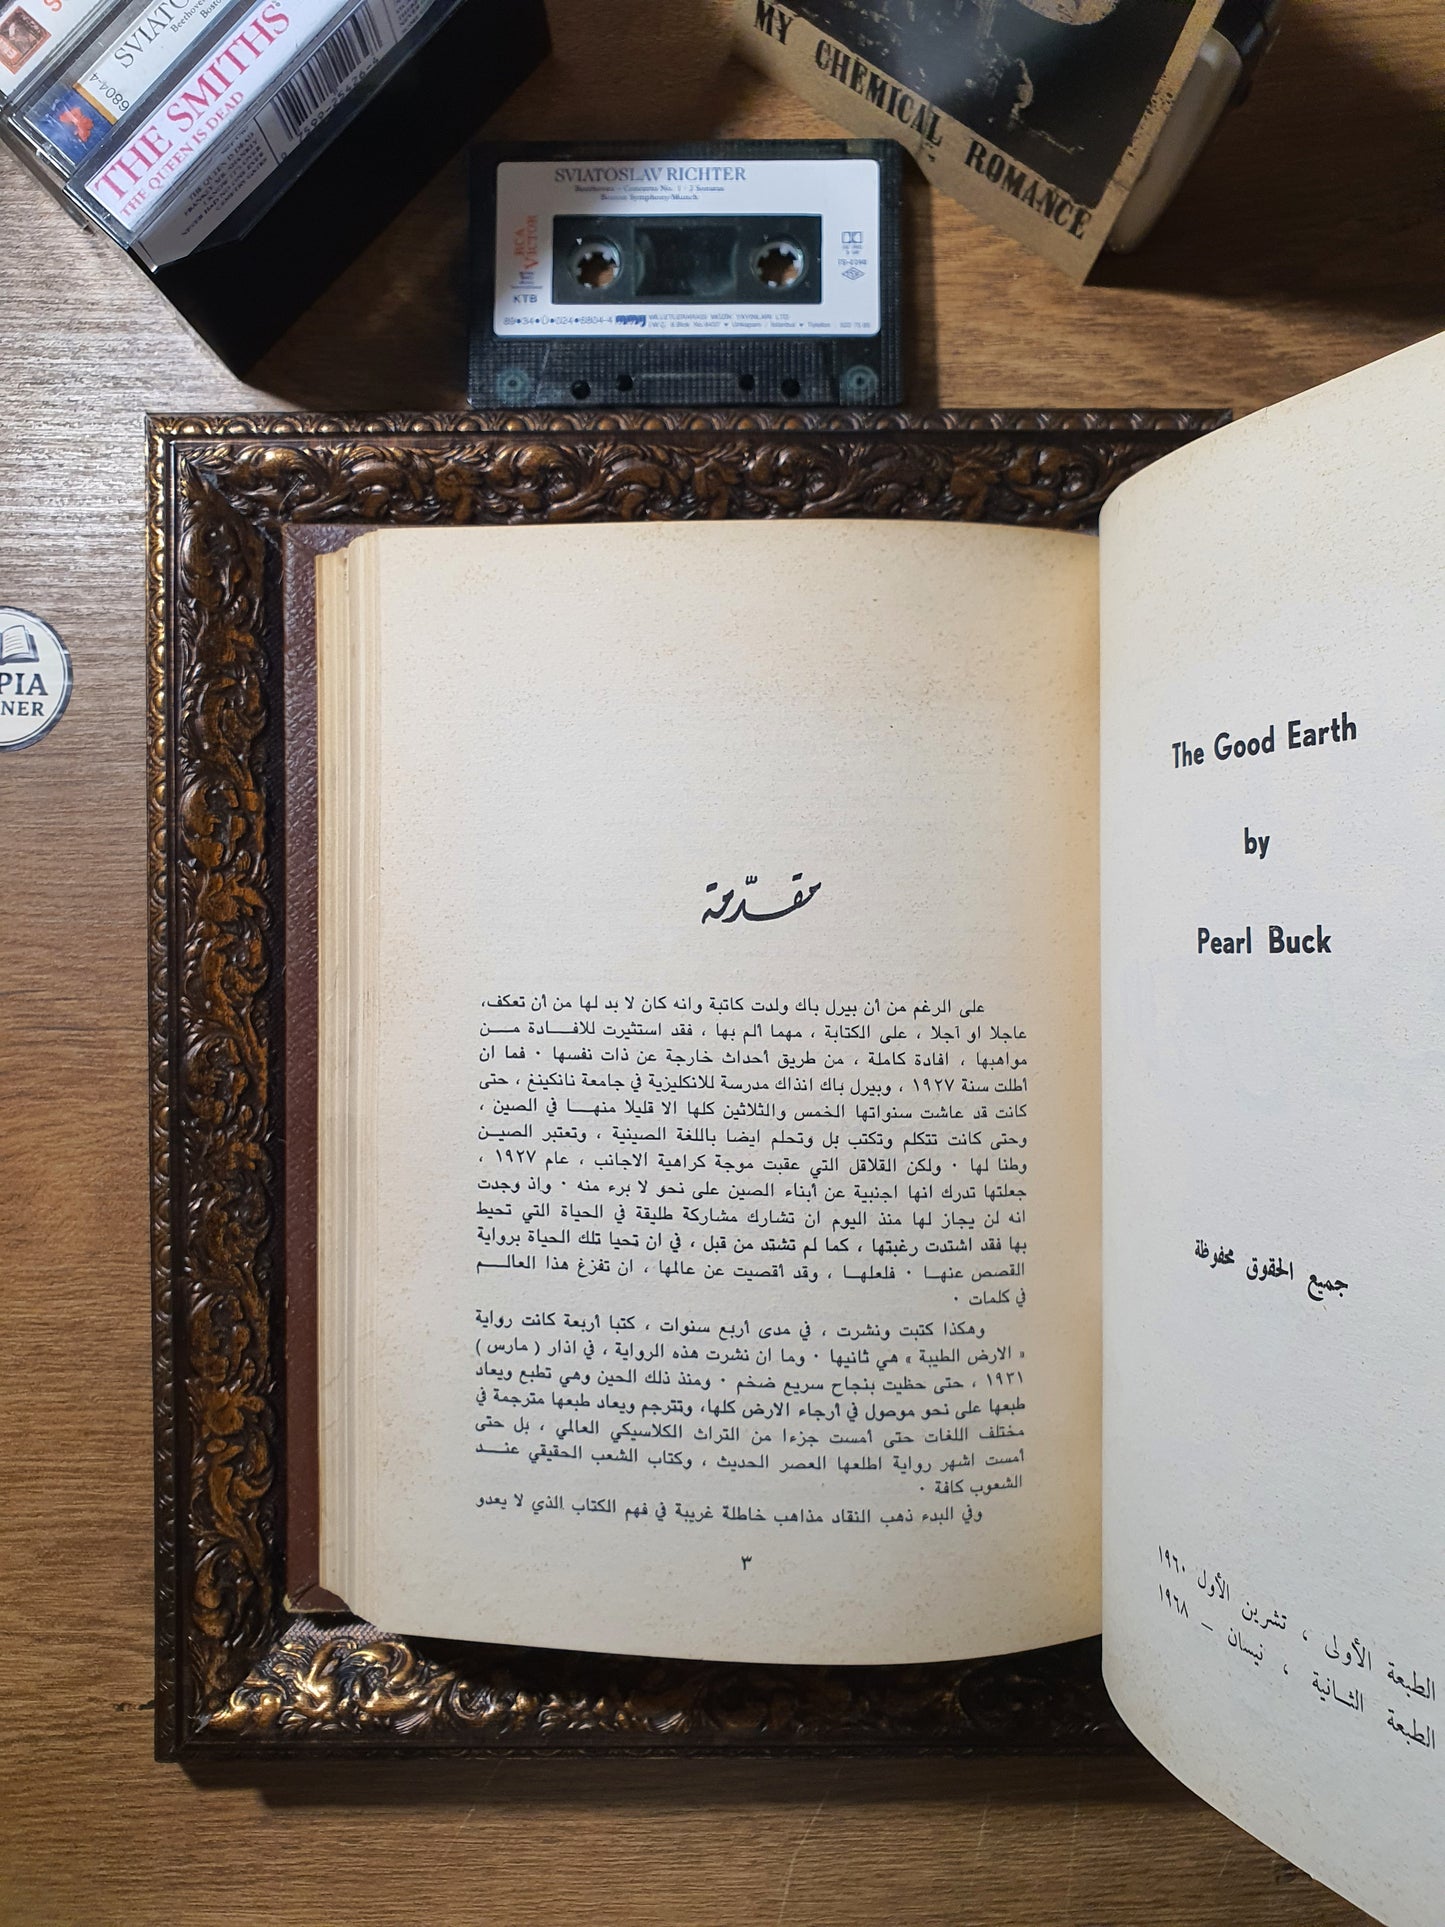 SVIATO
Beethoven
Boston
6804-4
THE SMITHS
THE QUEEN IS DEAD
MY CHEMICAL ROMANCE
SVIATOSLAV RICHTER
Beethoven - Concerto No. 1 - 2 Sonatas
Boston Symphony/Munch
RCA
VICTOR
KTB
PIA
NER
The Good Earth
by
Pearl Buck
جميع الحقوق محفوظة
الطبعة الأولى ، تشرين الأول ١٩٦٠
الطبعة الثانية ، نيسان – ١٩٦٨
مقدّمة
على الرغم من أن بيرل باك ولدت كاتبة وانه كان لا بد لها من أن تعكف،
عاجلا او آجلا ، على الكتابة ، مهما ألم بها ، فقد استثيرت للافـــادة مـــن
مواهبها ، افادة كاملة ، من طريق أحداث خارجة عن ذات نفسها . فما ان
أطلت سنة ١٩٢٧ ، وبيرل باك انذاك مدرسة للانكليزية في جامعة نانكينغ ، حتى
كانت قد عاشت سنواتها الخمس والثلاثين كلها الا قليلا منهـــا في الصين ،
وحتى كانت تتكلم وتكتب بل وتحلم ايضا باللغة الصينية ، وتعتبر الصيــن
وطنا لها . ولكن القلاقل التي عقبت موجة كراهية الاجانب ، عام ١٩٢٧ ،
جعلتها تدرك انها اجنبية عن أبناء الصين على نحو لا برء منه . واذ وجدت
انه لن يجاز لها منذ اليوم ان تشارك مشاركة طليقة في الحياة التي تحيط
بها فقد اشتدت رغبتها ، كما لم تشتد من قبل ، في ان تحيا تلك الحياة برواية
القصص عنهـا . فلعلهـا ، وقد أقصيت عن عالمها ، ان تفزغ هذا العالـــم
في كلمات .
وهكذا كتبت ونشرت ، في مدى أربع سنوات ، كتبا أربعة كانت رواية
« الارض الطيبة » هي ثانيها . وما ان نشرت هذه الرواية ، في اذار ( مارس )
١٩٣١ ، حتى حظيت بنجاح سريع ضخم . ومنذ ذلك الحين وهي تطبع ويعاد
طبعها على نحو موصول في أرجاء الارض كلها، وتترجم ويعاد طبعها مترجمة في
مختلف اللغات حتى أمست جزءا من التراث الكلاسيكي العالمي ، بل حتى
أمست اشهر رواية اطلعها العصر الحديث ، وكتاب الشعب الحقيقي عنـــد
الشعوب كافة .
وفي البدء ذهب النقاد مذاهب خاطلة غريبة في فهم الكتاب الذي لا يعدو
٣